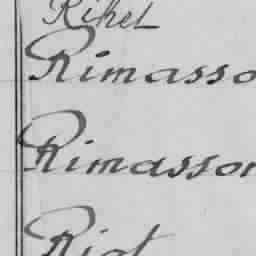 Rihet
Rimasso
Rimasson
Riot